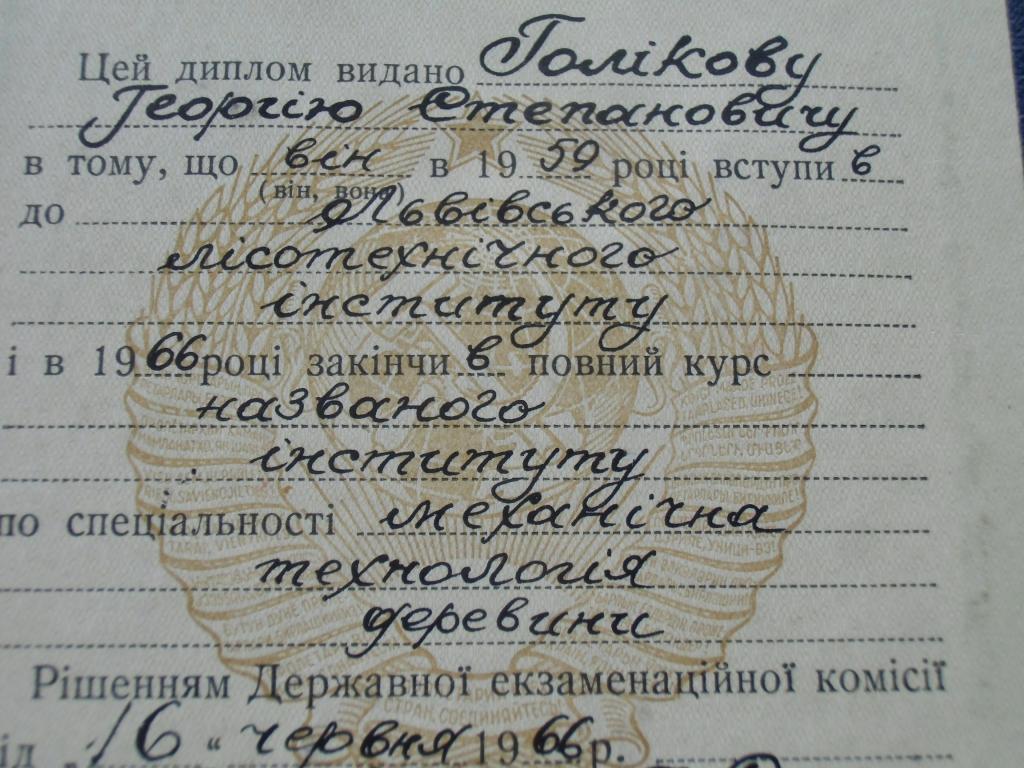 Цей диплом видано Голікову
Георгію Степановичу
в тому, що він в 19 59 році вступи в
(він, вона)
до Львівського
лісотехнічного
інституту
і в 19 66 році закінчи в повний курс
названого
інституту
по спеціальності механічна
технологія
деревини
Рішенням Державної екзаменаційної комісії
від „16“ червня 19 66 р.